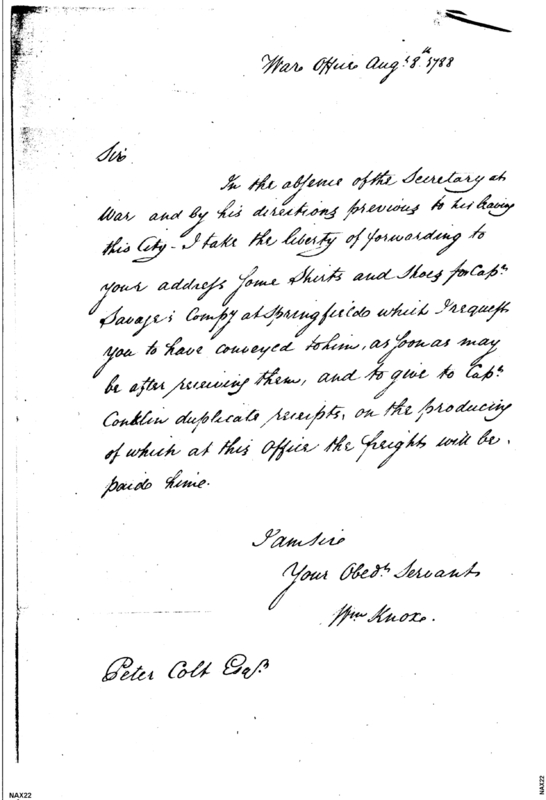 War Office Augt 8th 1788
Sir
In the absence of the Secretary at
War and by his directions previous to his leaving
this City - I take the liberty of forwarding to
your address some Shirts and Shoes for Capn
Savage's Compy at Springfield which I request
you to have conveyed to him, as soon as may
be after receiving them, and to give to Capn
Conklin duplicate receipts, on the producing
of which at this Office the freight will be
paid him.
I am Sir
Your Obedt Servant
Wm Knox.
Peter Colt Esqr
NAX22
NAX22